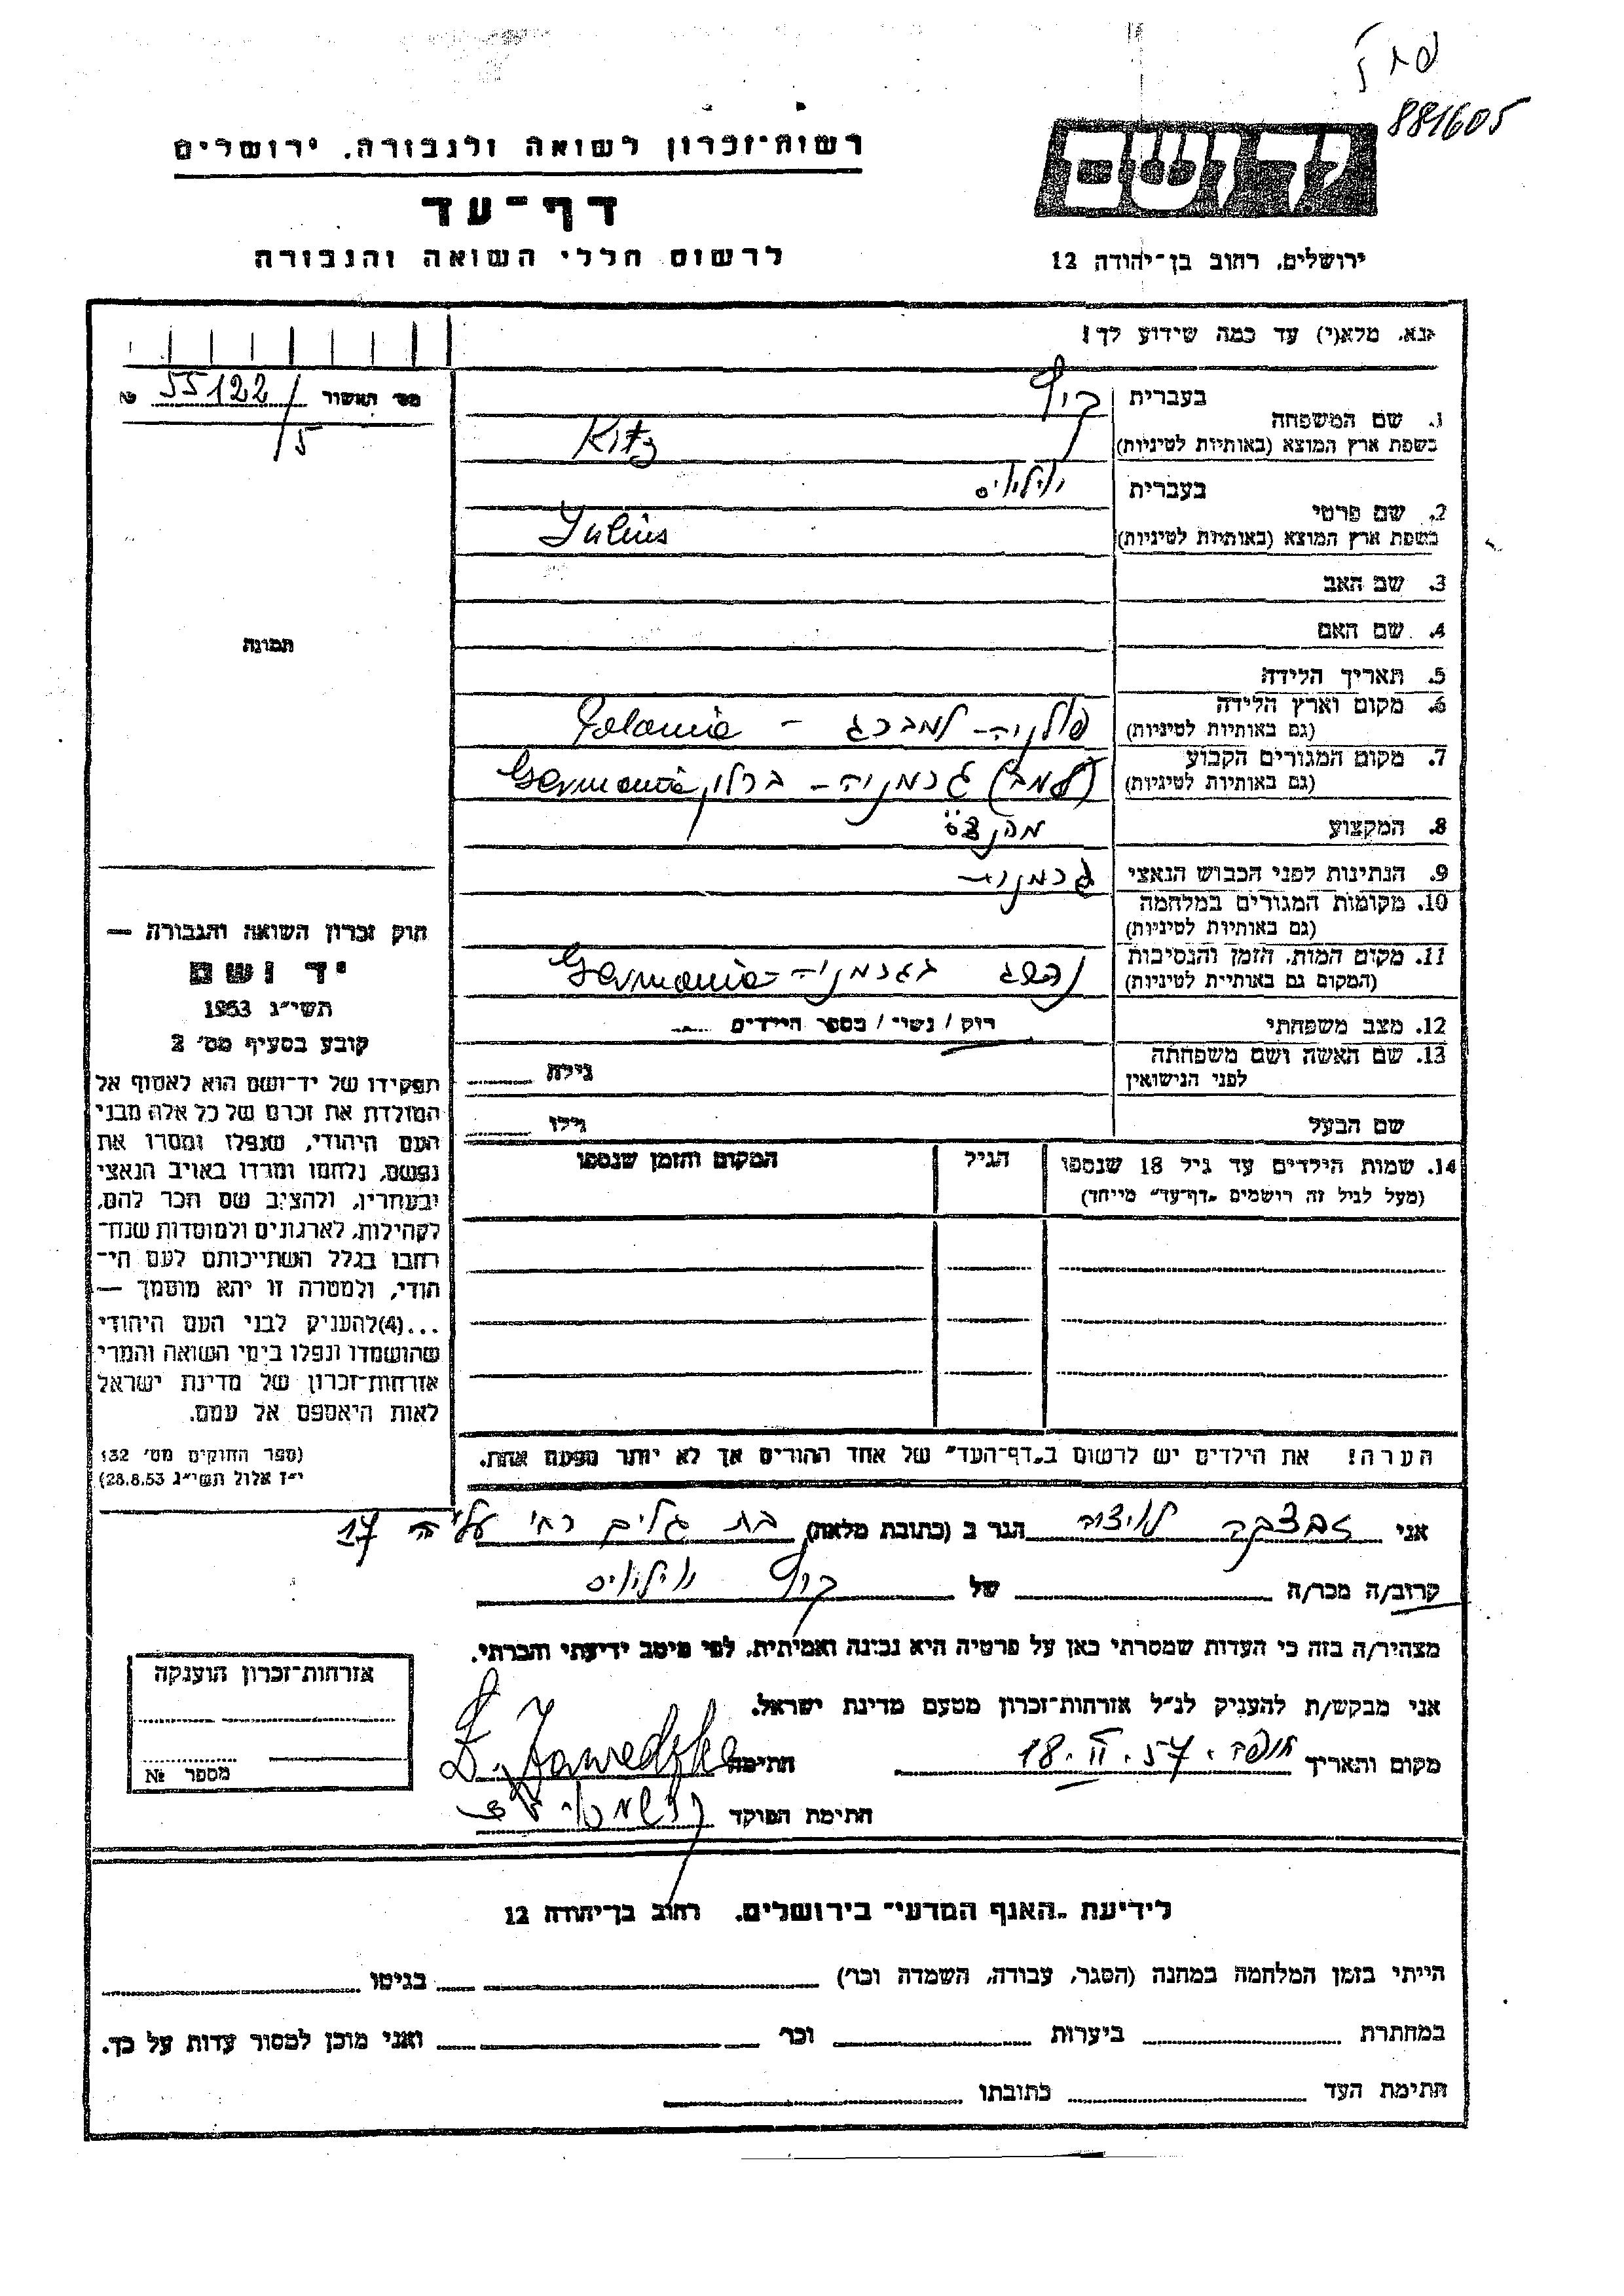 881605
רשות-זכרון לשואה ולגבורה, ירושלים
דף-עד
לרשום חללי השואה והגבורה
יד ושם
ירושלים, רחוב בן-יהודה 12
נא, מלא(י) עד כמה שידוע לך!
מס' האשור № 55122/5
תמונה
1. שם המשפחה
בעברית קיץ
בשפת ארץ המוצא (באותיות לטיניות) Kitz
2. שם פרטי
בעברית יוליוס
בשפת ארץ המוצא (באותיות לטיניות) Julius
3. שם האב
4. שם האם
5. תאריך הלידה
6. מקום וארץ הלידה
(גם באותיות לטיניות) פולניה - למברג - Polania
7. מקום המגורים הקבוע
(גם באותיות לטיניות) גרמניה - ברלין Germania
8. המקצוע מהנדס
9. הנתינות לפני הכבוש הנאצי גרמנית
10. מקומות המגורים במלחמה
(גם באותיות לטיניות)
11. מקום המות, הזמן והנסיבות
(המקום גם באותיות לטיניות) נהרג בגרמניה - Germania
12. מצב משפחתי רוק / נשוי / מספר הילדים
13. שם האשה ושם משפחתה
לפני הנישואין
גילה
שם הבעל
גילו
14. שמות הילדים עד גיל 18 שנספו
(מעל לגיל זה רושמים "דף-עד" מיוחד)
הגיל
המקום והזמן שנספו
הערה! את הילדים יש לרשום ב"דף-העד" של אחד ההורים אך לא יותר מפעם אחת.
חוק זכרון השואה והגבורה —
יד ושם
תשי"ג 1953
קובע בסעיף מס' 2
תפקידו של יד-ושם הוא לאסוף אל
המולדת את זכרם של כל אלה מבני
העם היהודי, שנפלו ומסרו את
נפשם, נלחמו ומרדו באויב הנאצי
ובעוזריו, ולהציב שם וזכר להם,
לקהילות, לארגונים ולמוסדות שנח-
רבו בגלל השתייכותם לעם הי-
הודי, ולמטרה זו יהא מוסמך —
...(4)להעניק לבני העם היהודי
שהושמדו ונפלו בימי השואה והמרי
אזרחות-זכרון של מדינת ישראל
לאות היאספם אל עמם.
(ספר החוקים מס' 132
י"ז אלול תשי"ג 28.8.53)
אני הגר ב (כתובת מלאה) בת גלים רח' עליה 17
קרוב/ה מכר/ה של קיץ יוליוס
מצהיר/ה בזה כי העדות שמסרתי כאן על פרטיה היא נכונה ואמיתית, לפי מיטב ידיעתי והכרתי.
אני מבקש/ת להעניק לנ"ל אזרחות-זכרון מטעם מדינת ישראל.
מקום והתאריך חיפה. 18.II.57 חתימה
חתימת הפוקד
אזרחות-זכרון הוענקה
מספר №
לידיעת "האגף המדעי" בירושלים, רחוב בן-יהודה 12
הייתי בזמן המלחמה במחנה (הסגר, עבודה, השמדה וכו') בגיטו
במחתרת ביערות וכו' ואני מוכן למסור עדות על כך.
חתימת העד כתובתו